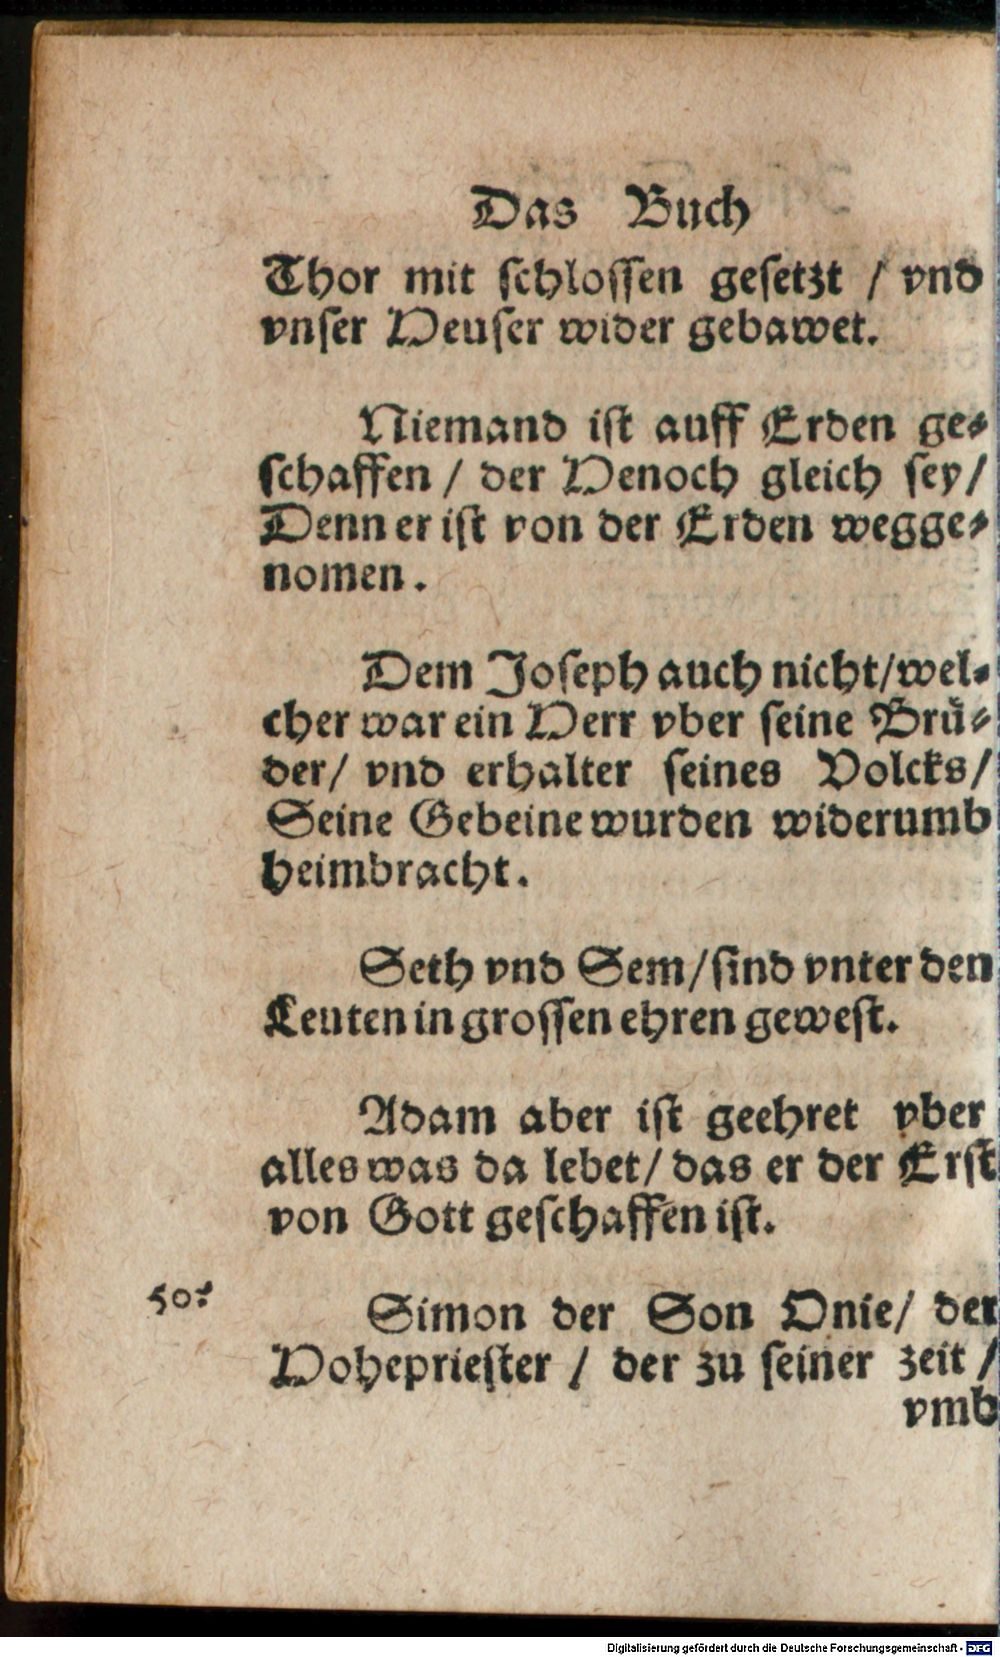 Das Buch
Thor mit schlossen gesetzt / vnd
vnser Heuser wider gebawet.
Niemand ist auff Erden ge-
schaffen / der Henoch gleich sey /
Denn er ist von der Erden wegge-
nomen.
Dem Joseph auch nicht / wel-
cher war ein Herr vber seine Brü-
der / vnd erhalter seines Volcks /
Seine Gebeine wurden widerumb
heimbracht.
Seth vnd Sem / sind vnter den
Leuten in grossen ehren gewest.
Adam aber ist geehret vber
alles was da lebet / das er der Erst
von Gott geschaffen ist.
50. Simon der Son Onie / der
Hohepriester / der zu seiner zeit /
vmb
Digitalisierung gefördert durch die Deutsche Forschungsgemeinschaft - DFG